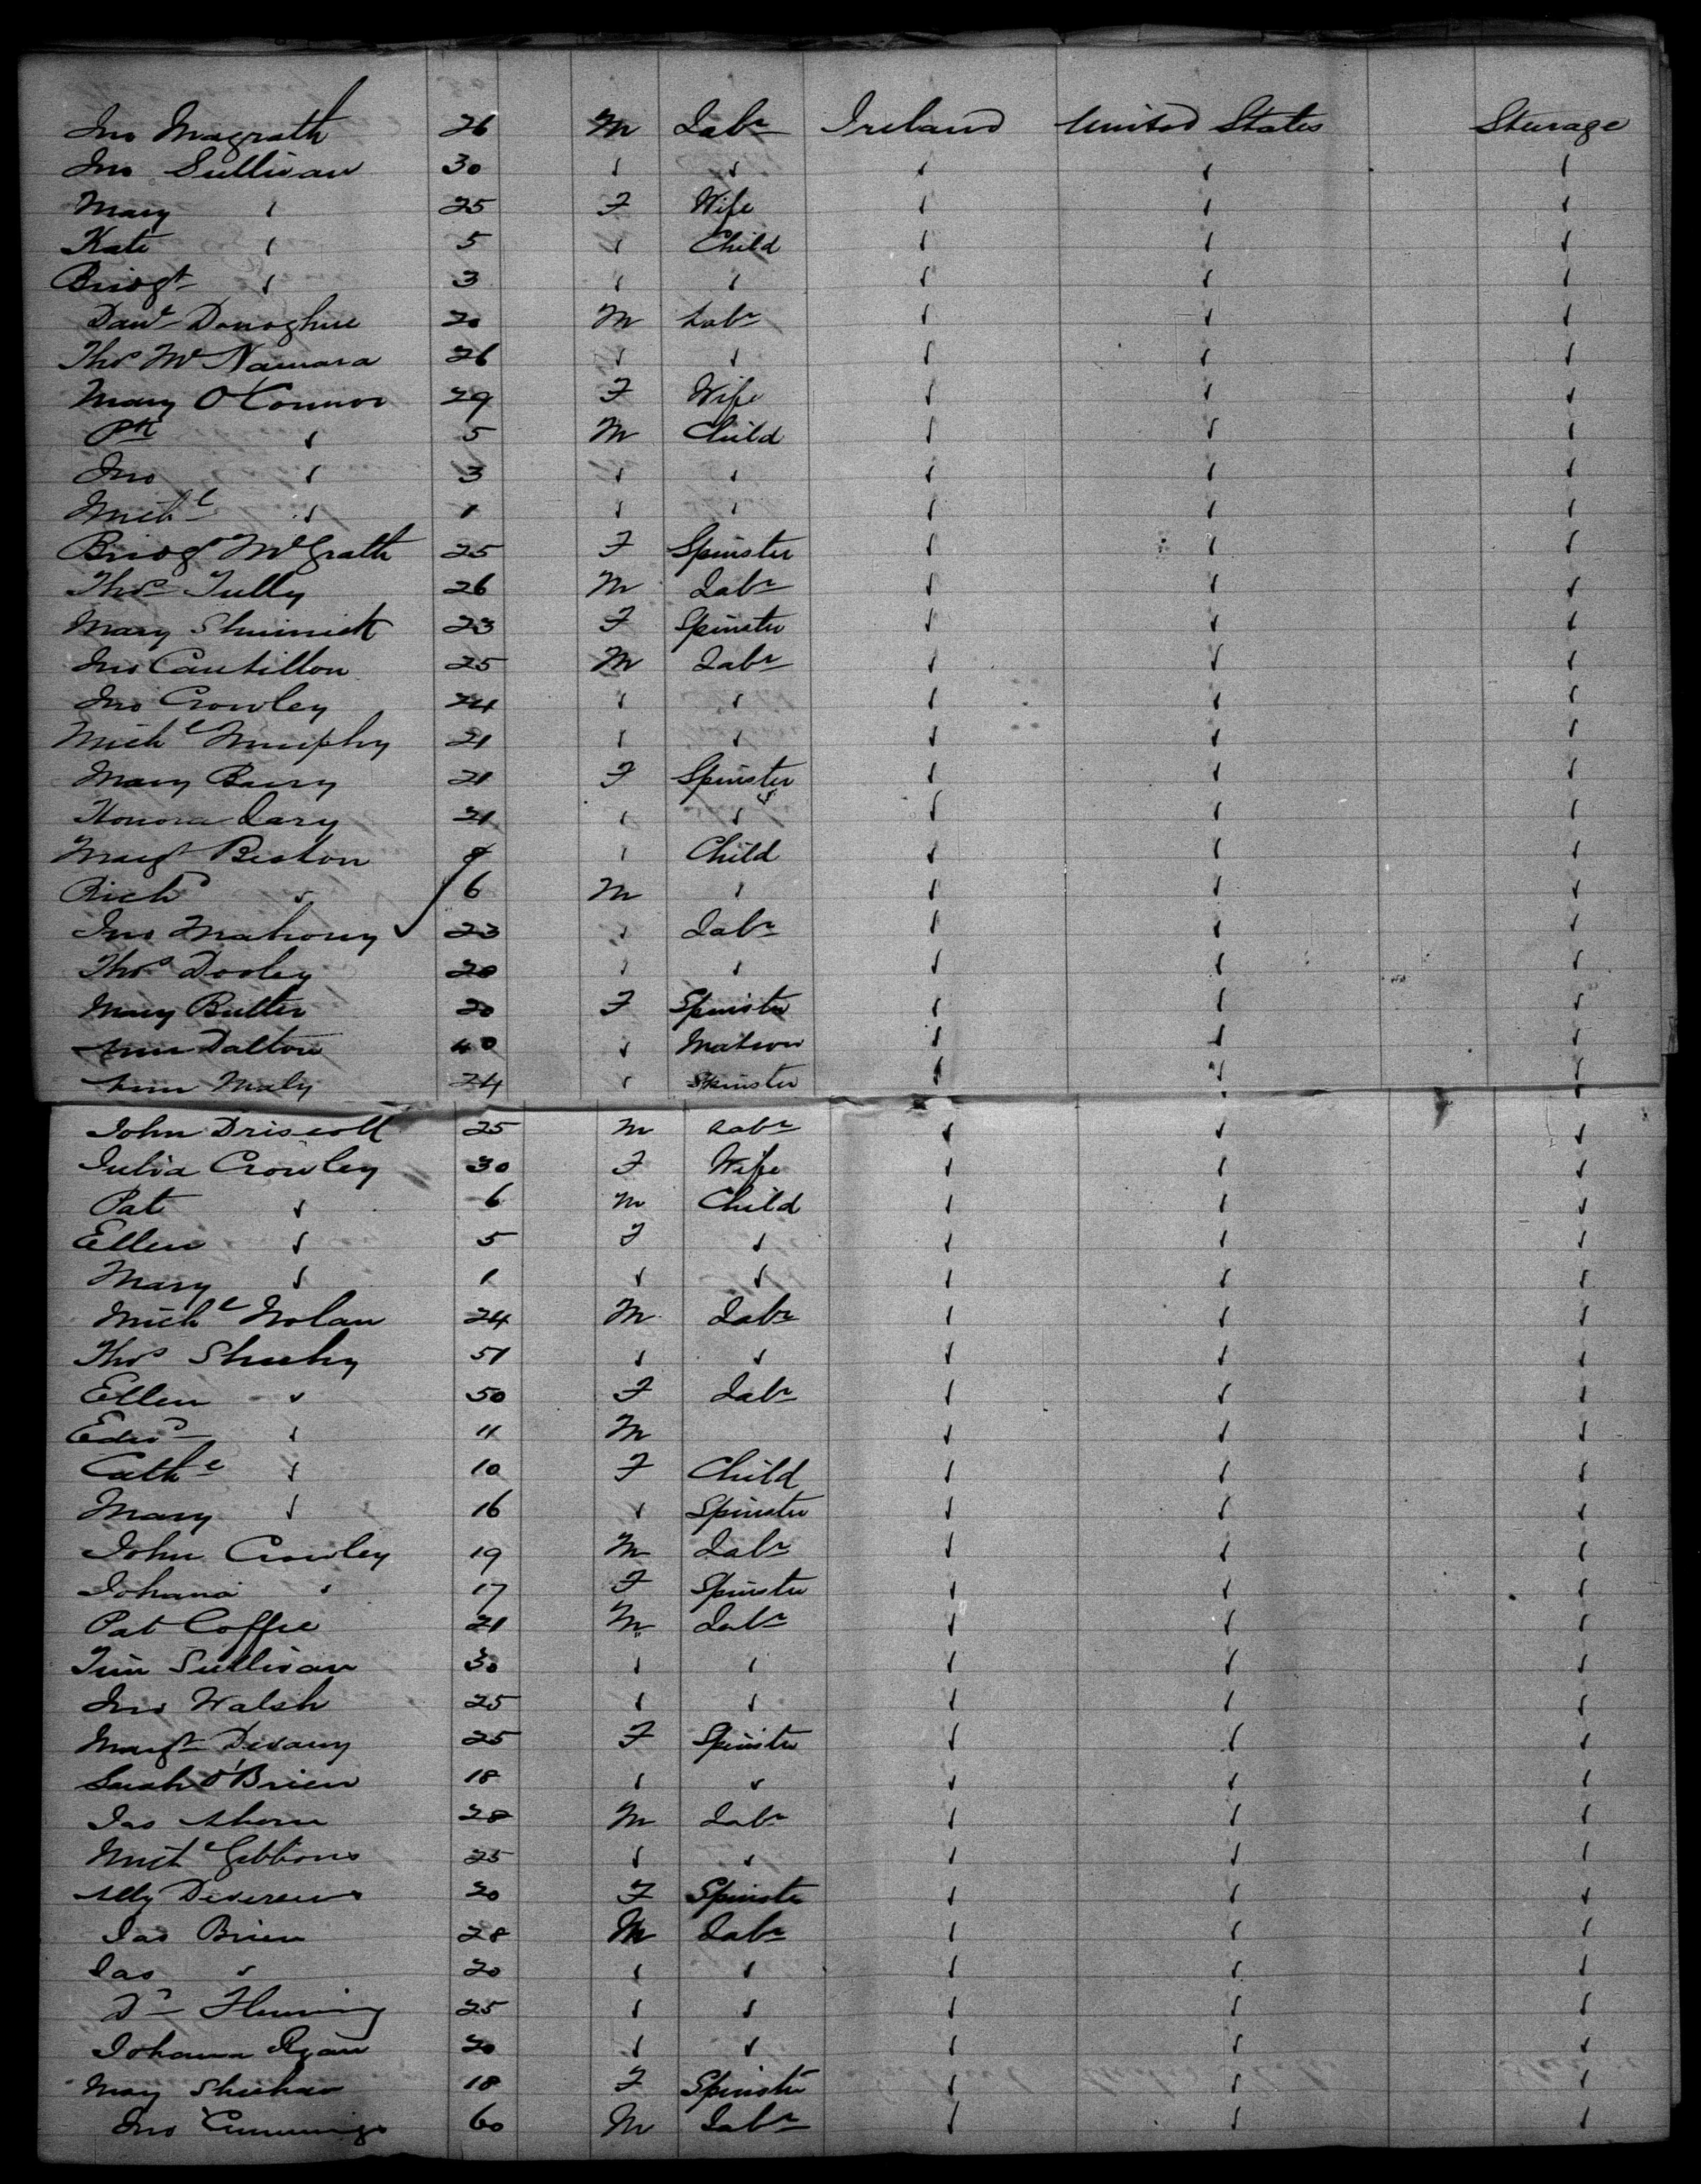 Jno Magrath 26 M Labr Ireland United States Steerage
Jno Sullivan 30 ✓ ✓ ✓ ✓ ✓
Mary ✓ 25 F Wife ✓ ✓ ✓
Kate ✓ 5 ✓ Child ✓ ✓ ✓
Bridgt ✓ 3 ✓ ✓ ✓ ✓ ✓
Danl Donoghue 20 M Labr ✓ ✓ ✓
Thos McNamara 26 ✓ ✓ ✓ ✓ ✓
Mary O'Connor 29 F Wife ✓ ✓ ✓
Pk ✓ 5 M Child ✓ ✓ ✓
Jno ✓ 3 ✓ ✓ ✓ ✓ ✓
Michl ✓ 1 ✓ ✓ ✓ ✓ ✓
Bridgt McGrath 25 F Spinster ✓ ✓ ✓
Thos Tully 26 M Labr ✓ ✓ ✓
Mary 23 F Spinster ✓ ✓ ✓
Jno Cantillon 25 M Labr ✓ ✓ ✓
Jno Crowley 24 ✓ ✓ ✓ ✓ ✓
Michl Murphy 21 ✓ ✓ ✓ ✓ ✓
Mary Barry 21 F Spinster ✓ ✓ ✓
Honora Cary 21 ✓ ✓ ✓ ✓ ✓
Margt Beston ✓ Child ✓ ✓ ✓
Richd ✓ 6 M ✓ ✓ ✓ ✓
Jno Mahony ✓ 23 ✓ Labr ✓ ✓ ✓
Thos Dooley 20 ✓ ✓ ✓ ✓ ✓
Mary Butler 20 F Spinster ✓ ✓ ✓
Ann Dalton 40 ✓ Matron ✓ ✓ ✓
Ann Maly 24 ✓ Spinster ✓ ✓ ✓
John Driscoll 25 M Labr ✓ ✓ ✓
Julia Crowley 30 F Wife ✓ ✓ ✓
Pat ✓ 6 M Child ✓ ✓ ✓
Ellen ✓ 5 F ✓ ✓ ✓ ✓
Mary ✓ 1 ✓ ✓ ✓ ✓ ✓
Michl Nolan 24 M Labr ✓ ✓ ✓
Thos Sheehy 51 ✓ ✓ ✓ ✓ ✓
Ellen ✓ 50 F Labr ✓ ✓ ✓
Edwd ✓ 11 M ✓ ✓ ✓
Cathe ✓ 10 F Child ✓ ✓ ✓
Mary ✓ 16 ✓ Spinster ✓ ✓ ✓
John Crowley 19 M Labr ✓ ✓ ✓
Johana ✓ 17 F Spinster ✓ ✓ ✓
Pat Coffee 21 M Labr ✓ ✓ ✓
Tim Sullivan 30 ✓ ✓ ✓ ✓ ✓
Jno Walsh 25 ✓ ✓ ✓ ✓ ✓
Margt Devany 25 F Spinster ✓ ✓ ✓
Sarah O'Brien 18 ✓ ✓ ✓ ✓ ✓
Jas Ahern 28 M Labr ✓ ✓ ✓
Michl Gibbons 25 ✓ ✓ ✓ ✓ ✓
Ally Devereux 20 F Spinster ✓ ✓ ✓
Jas Brien 28 M Labr ✓ ✓ ✓
Jas ✓ 20 ✓ ✓ ✓ ✓ ✓
Fleming 25 ✓ ✓ ✓ ✓ ✓
Johanna Ryan 20 ✓ ✓ ✓ ✓ ✓
Mary Sheehan 18 F Spinster ✓ ✓ ✓
Jno Cummings 60 M Labr ✓ ✓ ✓